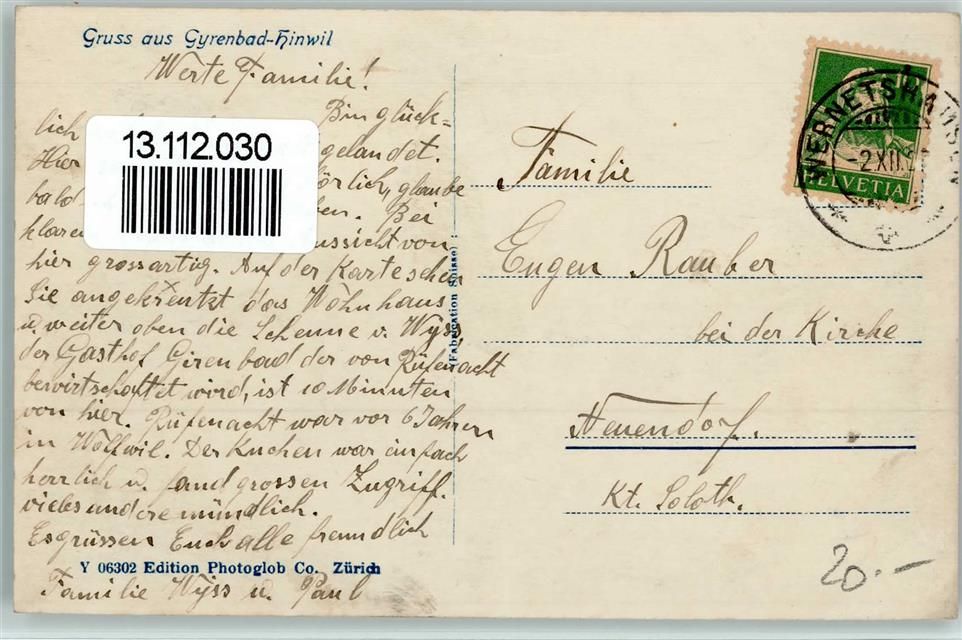 Gruss aus Gyrenbad-Hinwil
Werte Familie!
Bin glück=
lich gelandet.
Hier örlich, glaube
bald ben. Bei
klaren ussicht von
hier grossartig. Auf der Karte sehen
Sie angekreutzt das Wohnhaus
u. weiter oben die Scheune v. Wyss,
der Gasthof Girenbad der von Rüfenacht
bewirtschaftet wird, ist 10 Minuten
von hier. Rüfenacht war vor 6 Jahren
in Wolfwil. Der Kuchen war einfach
herrlich u. fand grossen Zugriff.
vieles andere mündlich.
Es grüssen Euch alle freundlich
Y 06302 Edition Photoglob Co. Zürich
Familie Wyss u. Paul
13.112.030
(Fabrication Suisse) :
WERNETSHAUSEN
-2.XII.
HELVETIA
Familie
Eugen Rauber
bei der Kirche
Neuendorf.
Kt. Soloth.
20.-